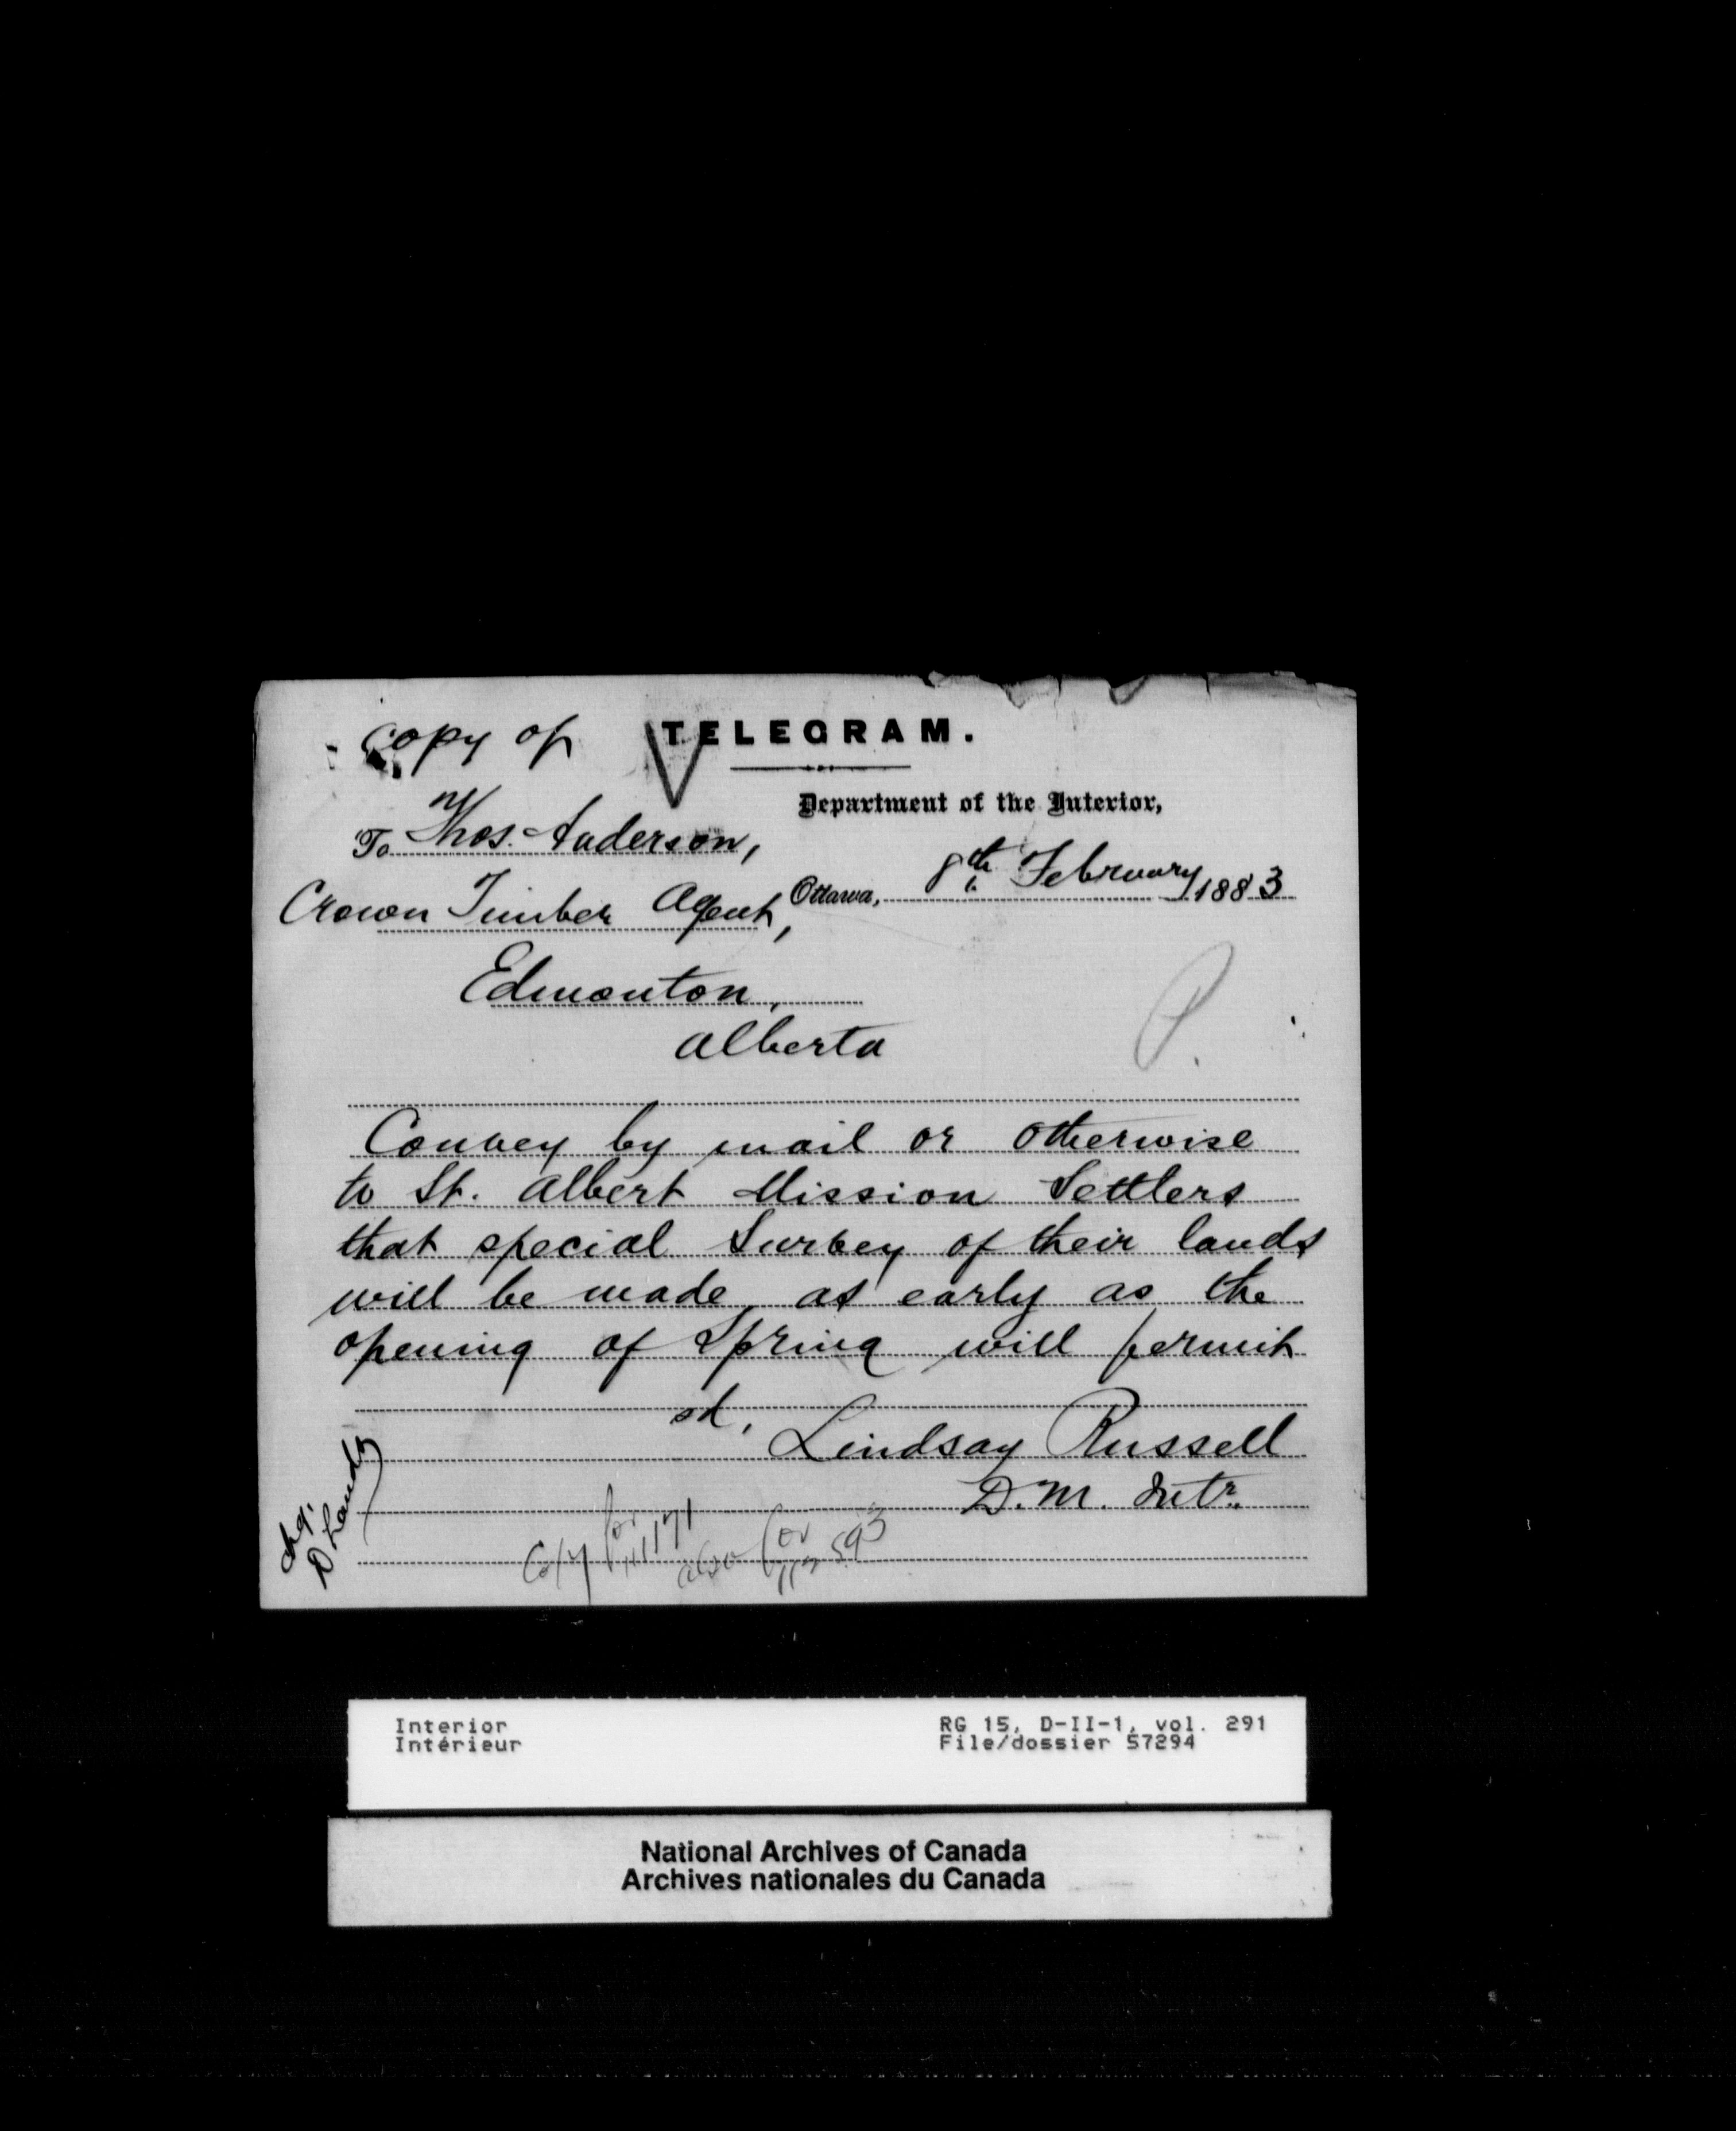 Copy of TELEGRAM.
Department of the Interior,
To Thos. Anderson,
Ottawa, 8th February 1883
Crown Timber Agent,
Edmonton,
Alberta
P.
Convey by mail or otherwise
to St. Albert Mission Settlers
that special Survey of their lands
will be made as early as the
opening of Spring will permit
sd, Lindsay Russell
D.M. Intr.
Chg.
D Lands
Copy for 111171
also for 112593
Interior
Intérieur
RG 15, D-II-1, vol. 291
File/dossier 57294
National Archives of Canada
Archives nationales du Canada